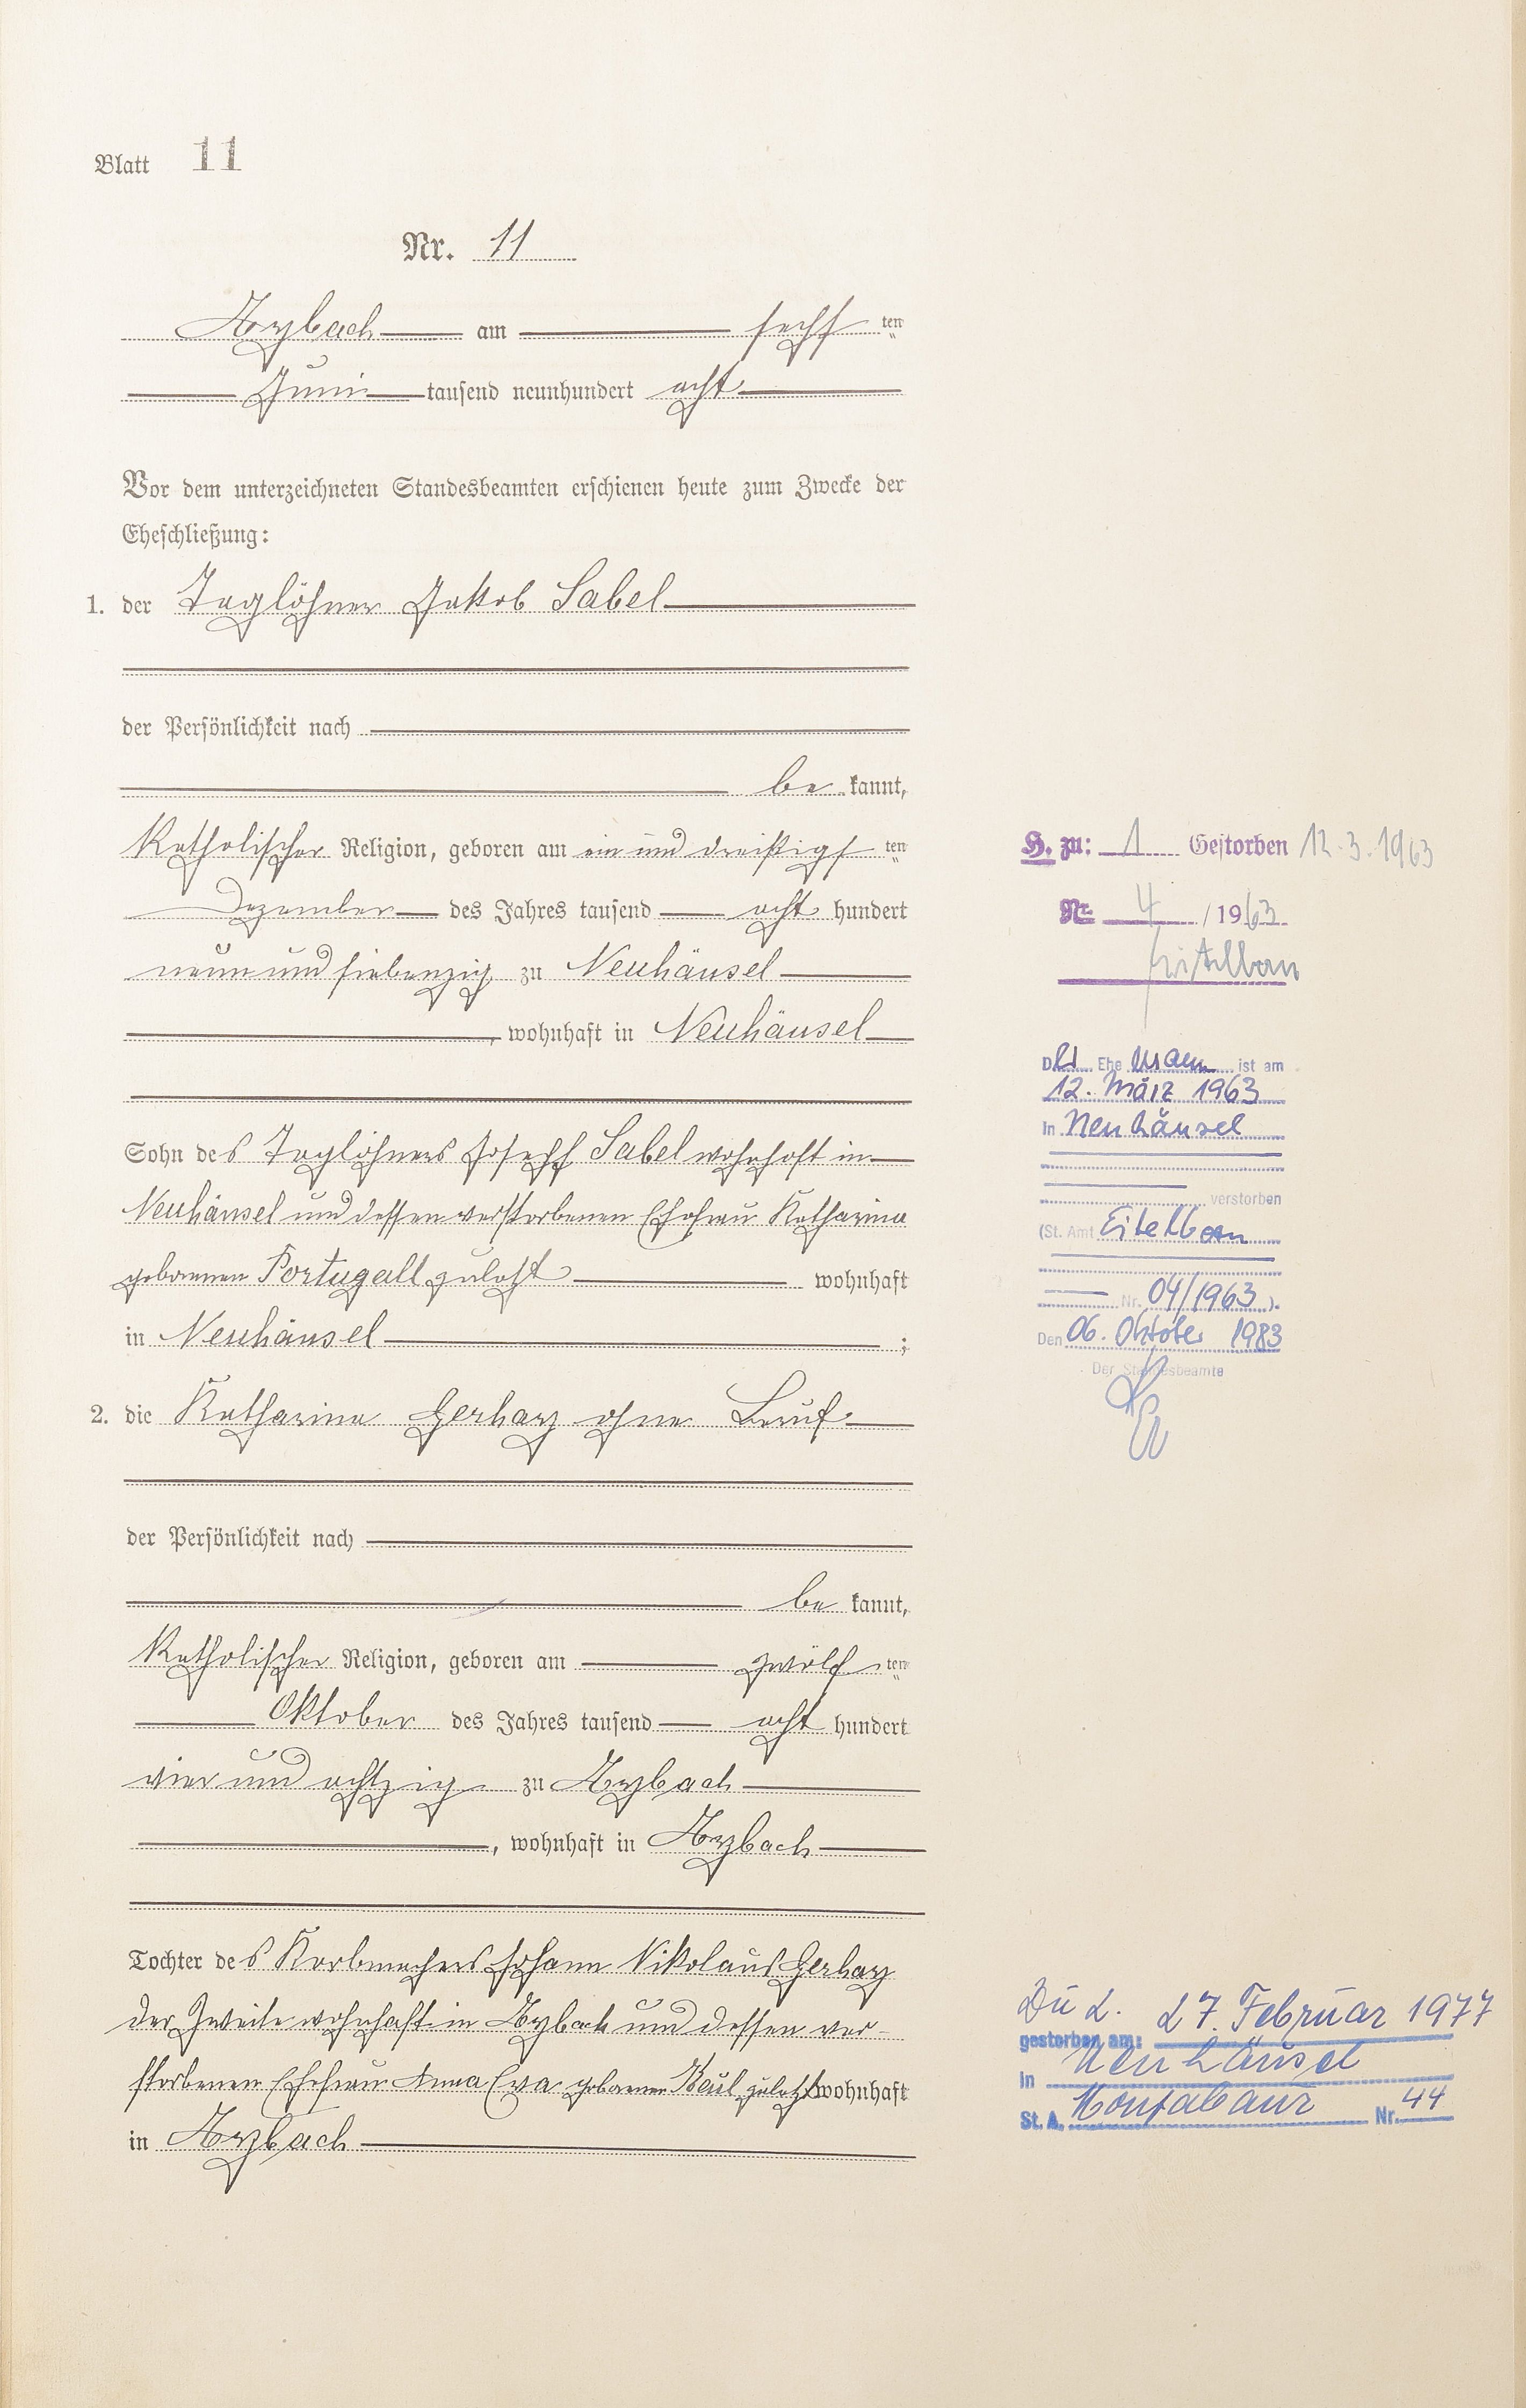 Blatt 11
Nr. 11
Arzbach am sechsten
Juni tausend neunhundert acht
Vor dem unterzeichneten Standesbeamten erschienen heute zum Zwecke der
Eheschließung:
1. der Taglöhner Jakob Sabel
der Persönlichkeit nach
be kannt,
Katholischer Religion, geboren am ein und dreißigsten
Dezember des Jahres tausend acht hundert
neun und siebenzig zu Neuhäusel
, wohnhaft in Neuhäusel
Sohn des Taglöhners Joseph Sabel wohnhaft in
Neuhäusel und dessen verstorbenen Ehefrau Katharina
geborenen Portugall zuletzt wohnhaft
in Neuhäusel ;
2. die Katharina Gerharz ohne Beruf
der Persönlichkeit nach
be kannt,
Katholischer Religion, geboren am zwölften
Oktober des Jahres tausend acht hundert
vier und achtzig zu Arzbach
, wohnhaft in Arzbach
Tochter des Korbmachers Johann Nikolaus Gerharz
der Zweite wohnhaft in Arzbach und dessen ver-
storbenen Ehefrau Anna Eva geborenen Keul zuletzt wohnhaft
in Arzbach
H. zu: 1 Gestorben 12.3.1963
Nr. 4 / 1963
Eitelborn
Der Ehemann ist am
12. März 1963
in Neuhäusel
verstorben
(St. Amt Eitelborn
Nr. 04/1963 ).
Den 06. Oktober 1983
Der Standesbeamte
Zu 2.
gestorben am: 27. Februar 1977
in Neuhäusel
St. A. Montabaur Nr. 44